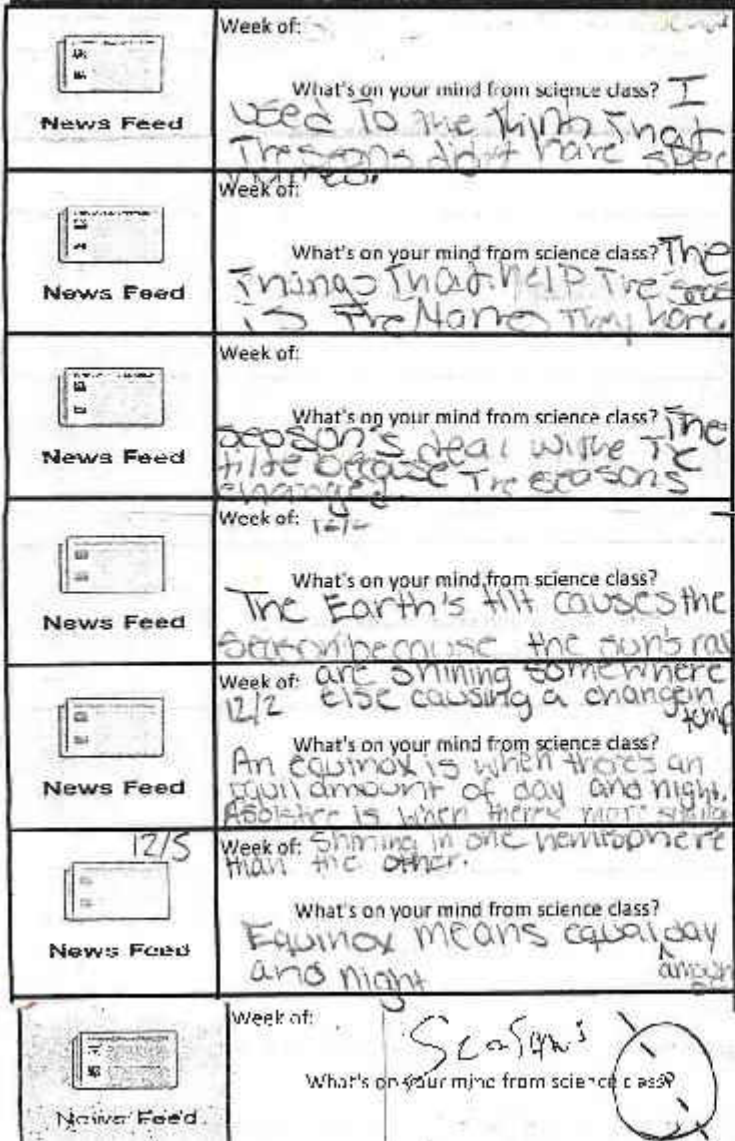 Week of:
What's on your mind from science class? I
used To the think That
The seasons didn't have spec
names.
News Feed
Week of:
What's on your mind from science class? The
Things That help The seas
is The Names They have.
News Feed
Week of:
What's on your mind from science class? The
season's deal withe The
tilte because The seasons
changed.
News Feed
Week of: 12/2
What's on your mind from science class?
The Earth's tilt causes the
because the sun's ray
News Feed
Week of: are shining somewhere
12/2 else causing a change in
temp
What's on your mind from science class?
An equinox is when there's an
equil amount of day and night.
is when there's more
News Feed
12/5
Week of: shining in one hemisphere
than the other.
What's on your mind from science class?
Equinox means equal day
and night
News Feed
Week of:
Seasons
What's on your mind from science class?
News Feed